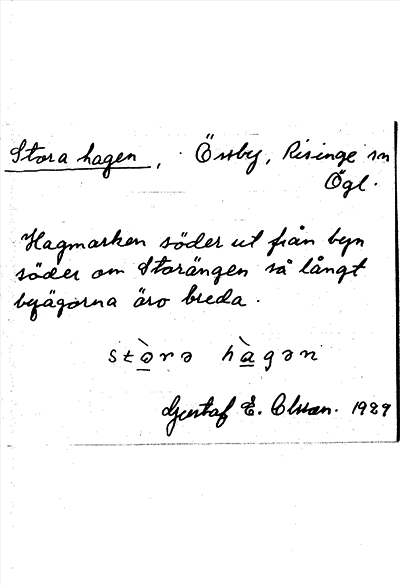 Stora hagen, Össby, Risinge sn
Ögl.
Hagmarken söder ut från byn
söder om Storängen så långt
byägorna äro breda.
stə̀rə hàgən
Gustaf E. Olsson. 1929